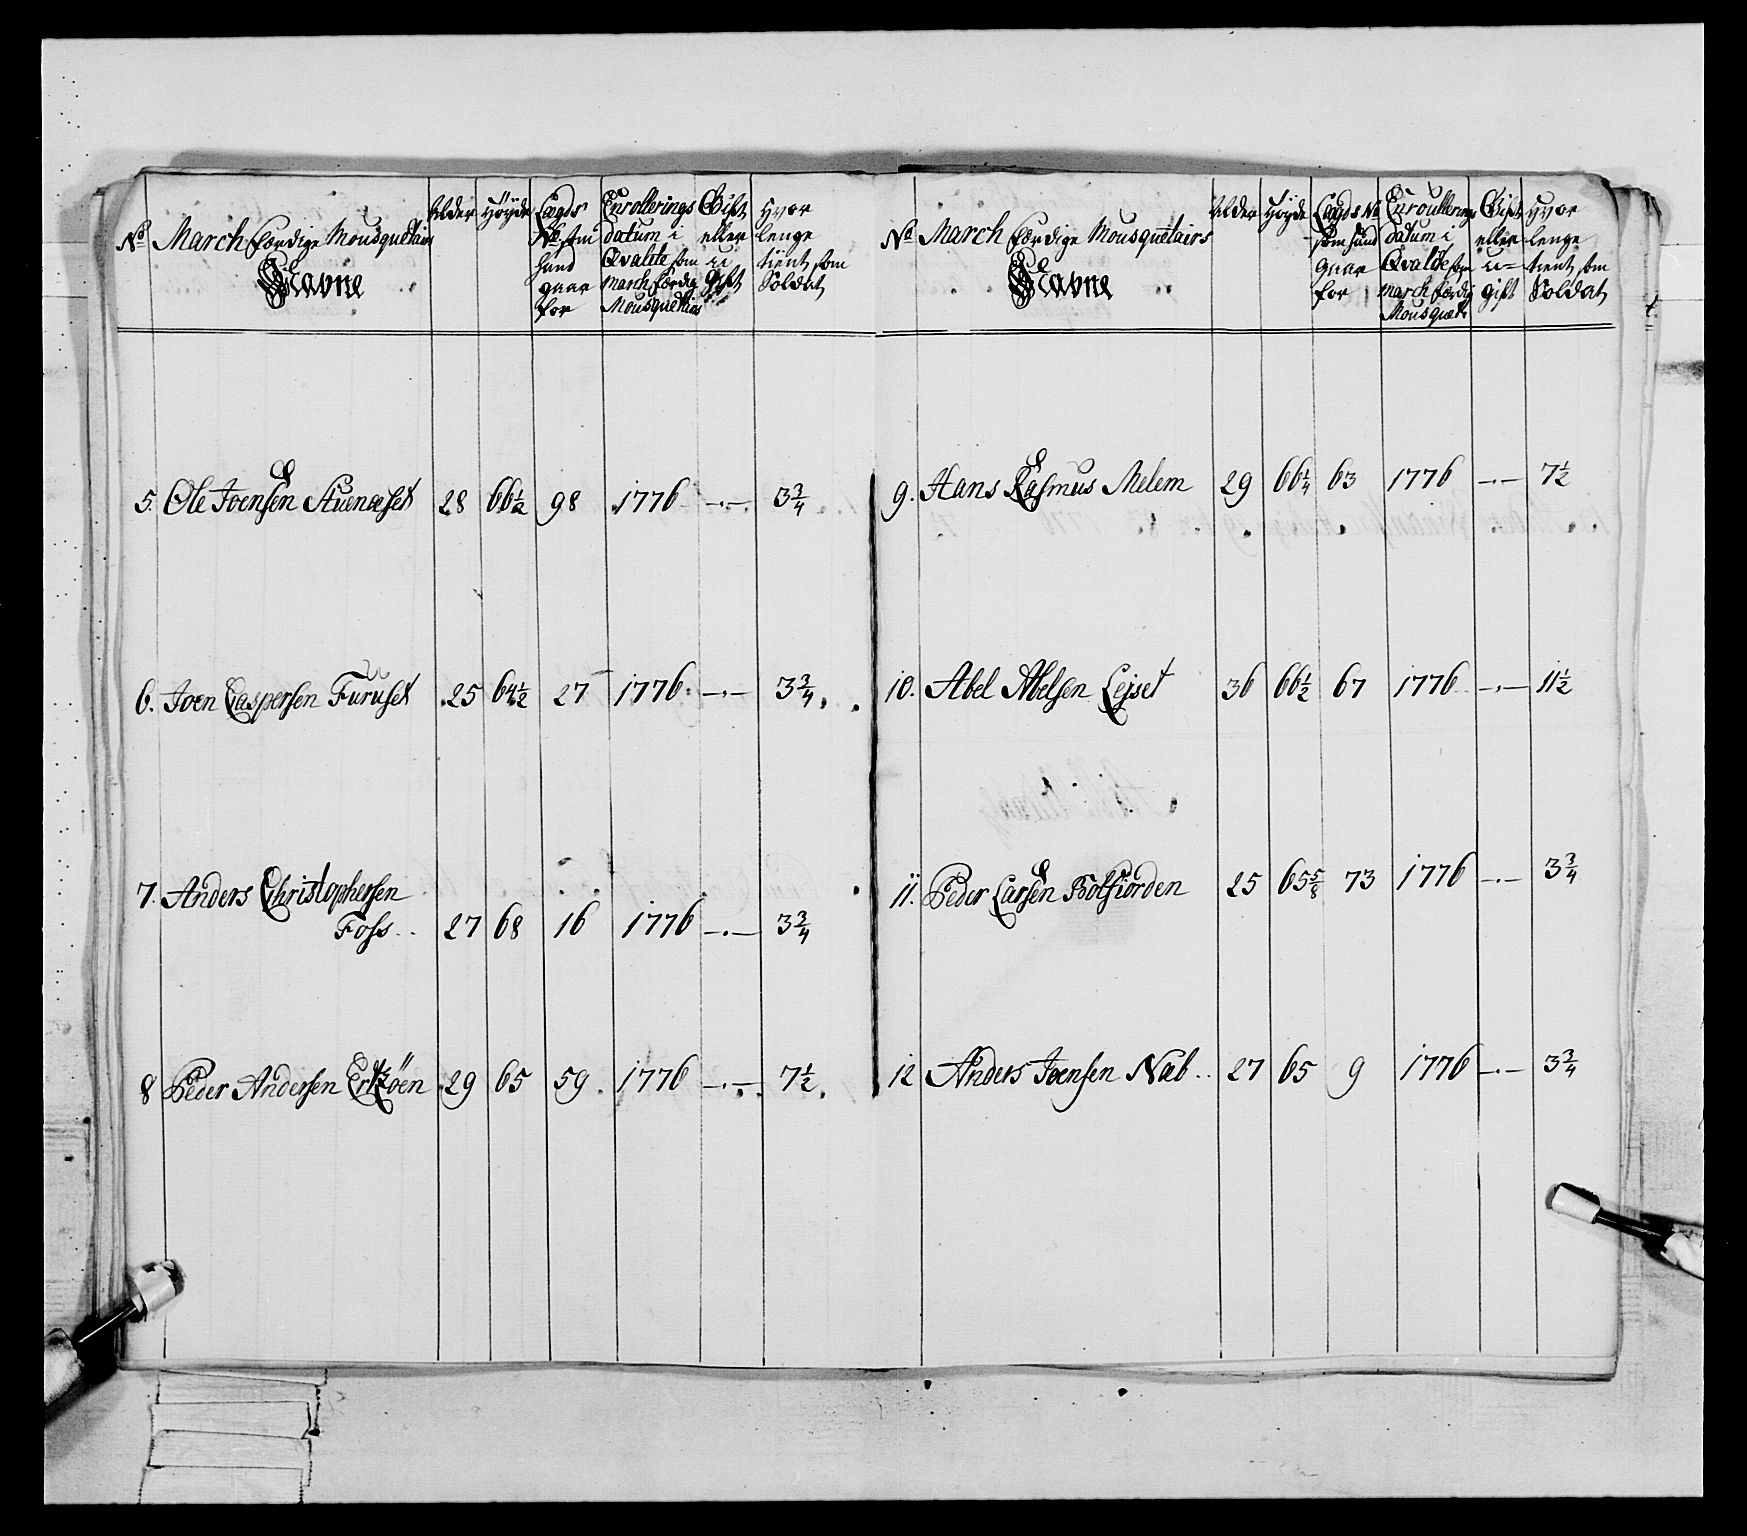 No March færdige Mousquetairs Navne | Alder | Høyde | Lægds No som hand gaar for | Enrollerings datum i Qvalite som march færdig Mousquetairs | Gift eller u gift | Hvor lenge tient som Soldat
5. Ole Joensen Stuenæset | 28 | 66 1/2 | 98 | 1776 | —.— | 3 3/4
6. Joen Caspersen Furuset | 25 | 64 1/2 | 27 | 1776. | —.— | 3 3/4
7. Anders Christophersen
Foss | 27 | 68 | 16 | 1776 | —.— | 3 3/4
8 Peder Andersen Erköen | 29 | 65 | 59 | 1776 | —.— | 7 1/2
No March færdige Mousquetairs Navne | Alder | Høyde | Lægds No som hand gaar for | Enroullerings datum i Qvalite som march færdig Mousquet: | Gift eller u= gift | Hvor lenge tient som Soldat
9. Hans Rasmus Melem | 29 | 66 1/4 | 63 | 1776 | —.— | 7 1/2
10. Abel Abelsen Lejset | 36 | 66 1/2 | 67 | 1776 | —.— | 11 1/2
11. Peder Larsen Botfiorden | 25 | 65 5/8 | 73 | 1776 | —.— | 3 3/4
12 Anders Joensen Nab | 27 | 65 | 9 | 1776 | —.— | 3 3/4